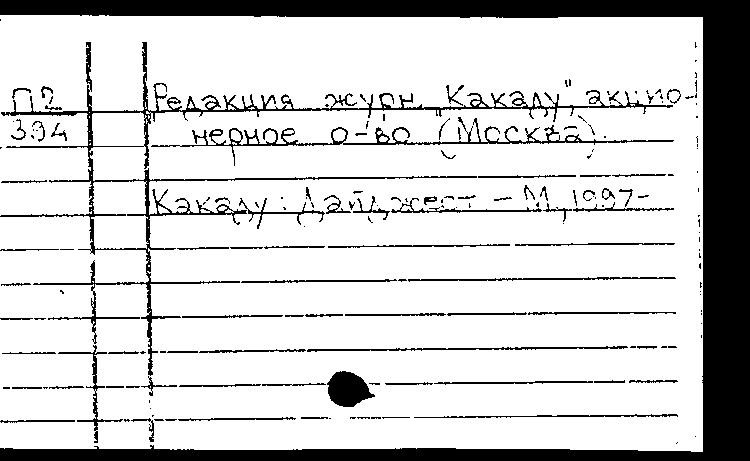 П2
394
Редакция журн. "Какаду", акцио-
нерное о-во (Москва).
Какаду: Дайджест - М., 1997-